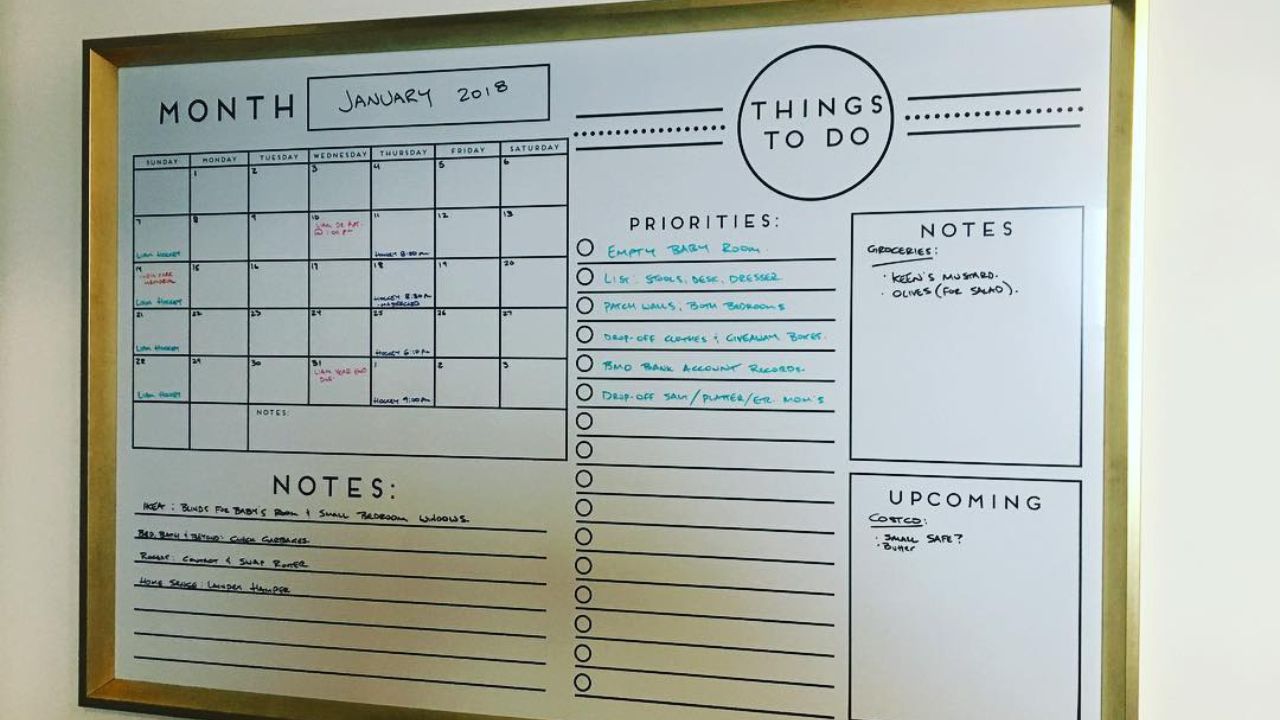 MONTH JANUARY 2018
SUNDAY MONDAY TUESDAY WEDNESDAY THURSDAY FRIDAY SATURDAY
1 2 3 4 5 6
7 8 9 10 11 12 13
@ 1:00 PM
LIAM HOCKEY HOCKEY 8:00PM
14 15 16 17 18 19 20
MEMORIAL
LIAM HOCKEY HOCKEY 8:30PM
21 22 23 24 25 26 27
LIAM HOCKEY HOCKEY 6:10PM
28 29 30 31 1 2 3
LIAM YEAR END
DUE
LIAM HOCKEY HOCKEY 9:00PM
NOTES:
NOTES:
IKEA: BLINDS FOR BABY'S ROOM & SMALL BEDROOM WINDOWS.
BED, BATH & BEYOND: CHECK GARBAGES
ROGERS: CONTACT & SWAP ROUTER
HOME SENSE: LAUNDRY HAMPER
THINGS
TO DO
PRIORITIES:
EMPTY BABY ROOM.
LIST: STOOLS, DESK, DRESSER
PATCH WALLS, BOTH BEDROOMS
DROP-OFF CLOTHES & GIVEAWAY BOXES.
BMO BANK ACCOUNT RECORDS.
DROP-OFF /PLATTER/ETC. MOM'S
NOTES
GROCERIES:
· KEEN'S MUSTARD.
· OLIVES (FOR SALAD).
UPCOMING
COSTCO:
· SMALL SAFE?
· BUTTER